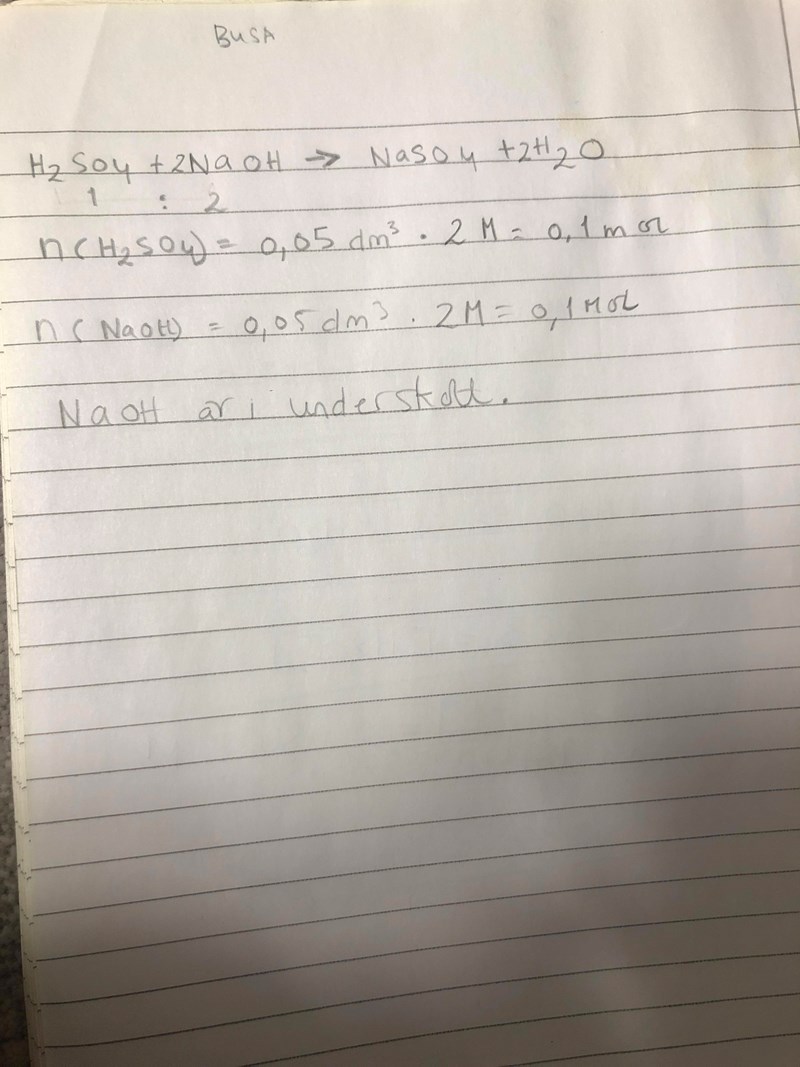 BUSA
H₂SO₄ + 2NaOH → NaSO₄ + 2H₂O
1 : 2
n(H₂SO₄) = 0,05 dm³ · 2 M = 0,1 mol
n(NaOH) = 0,05 dm³ · 2M = 0,1 Mol
NaOH är i underskott.